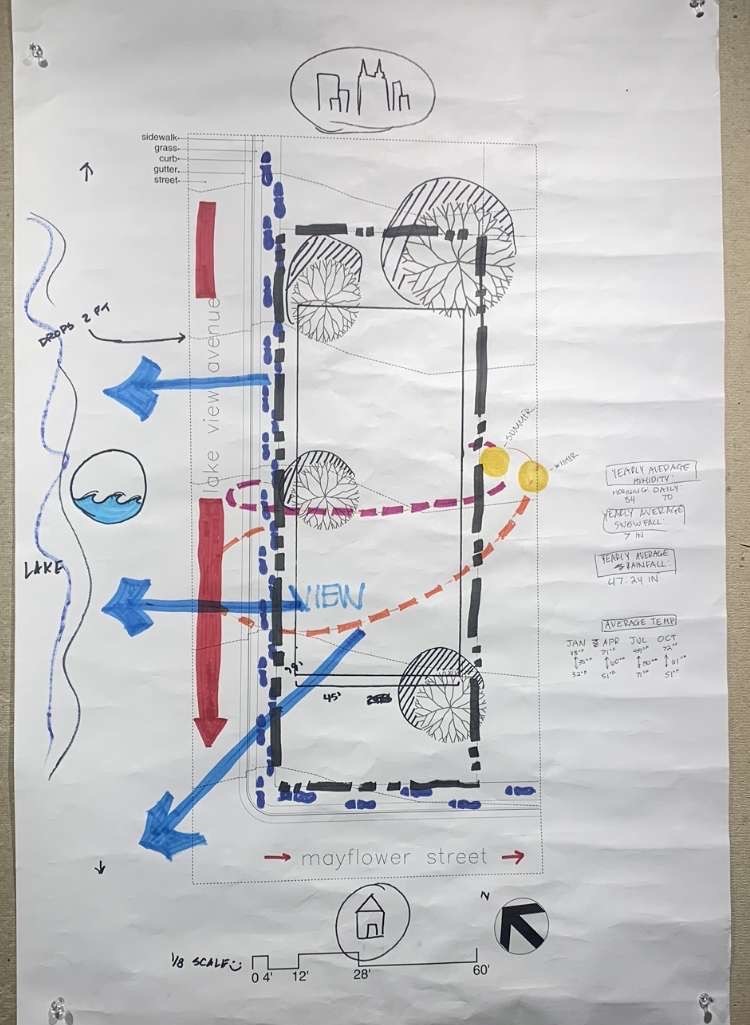 sidewalk
grass
curb
gutter
street
lake view avenue
DROPS 2 FT
LAKE
SUMMER
VIEW
YEARLY AVERAGE
HUMIDITY:
MORNING DAILY
84 70
YEARLY AVERAGE
SNOWFALL:
7 IN
YEARLY AVERAGE
RAINFALL:
47.24 IN
AVERAGE TEMP
JAN APR JUL OCT
45'
mayflower street
N
1/8 SCALE
0 4' 12' 28' 60'